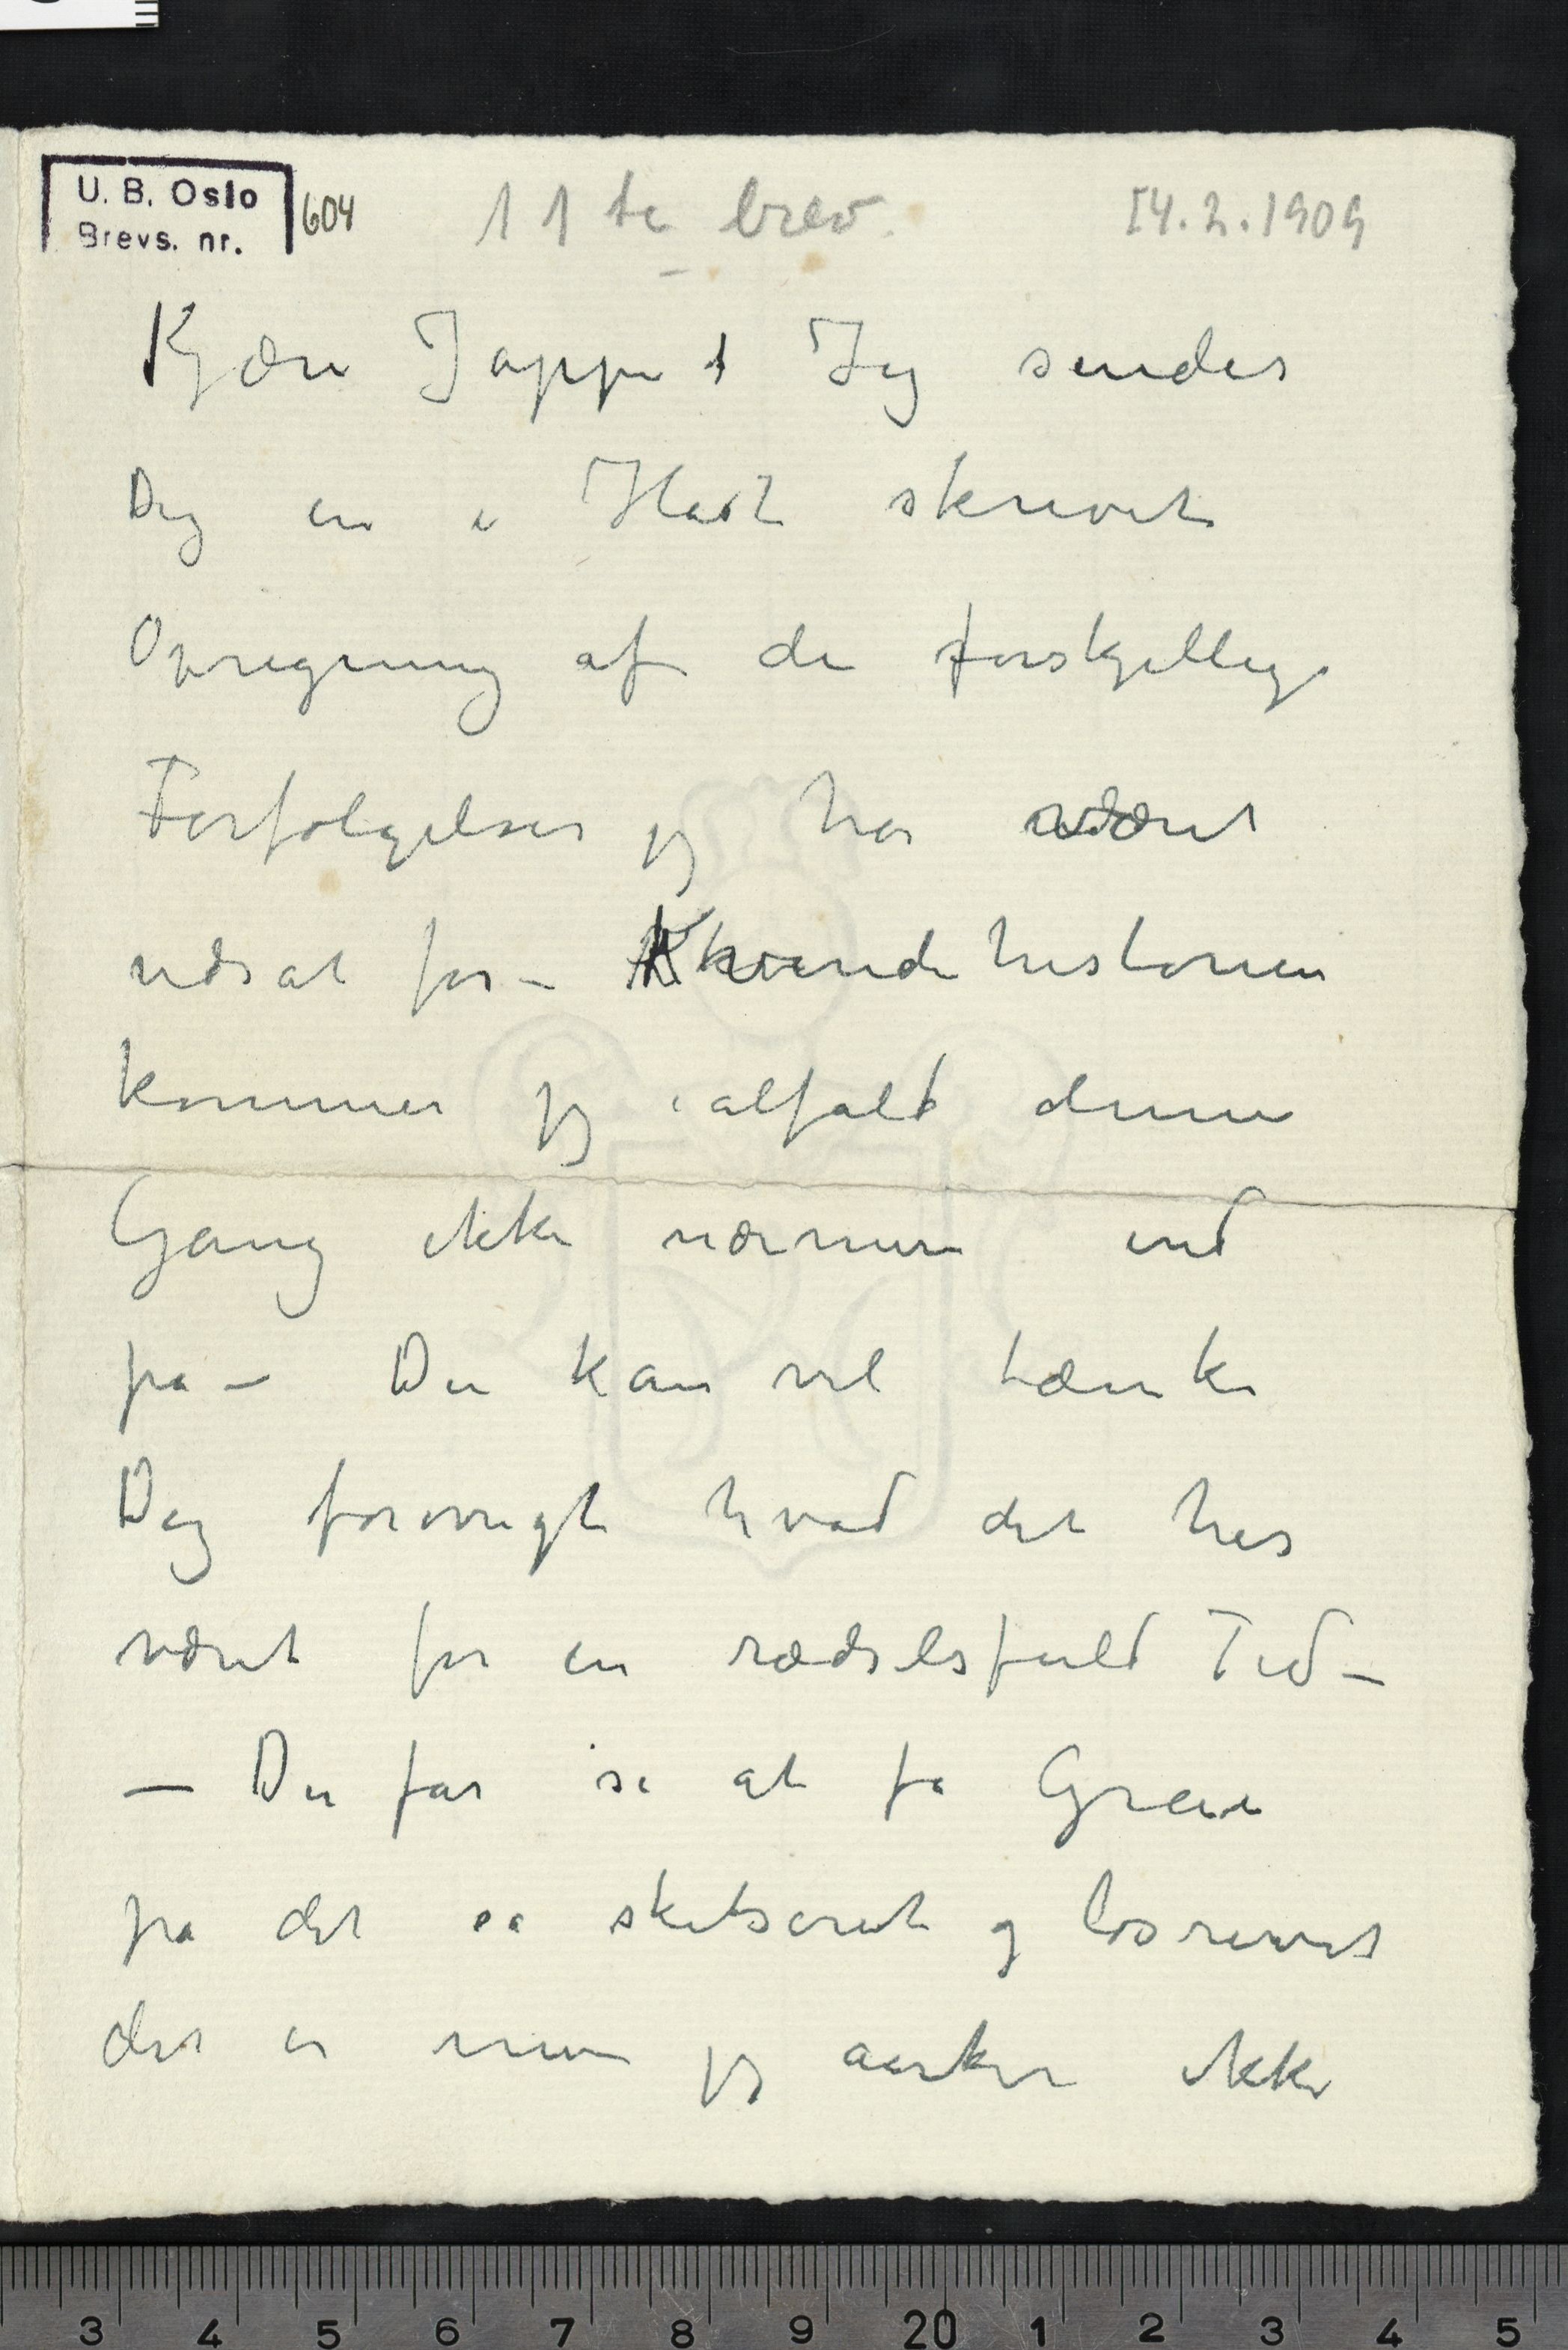 U. B. Oslo
Brevs. nr. 604
11te brev. 14.2.1909
Kjære Jappe! Jeg sender
Dig en i Hast skrevet
Opregning af de forskjellige
Forfølgelser jeg har været
udsat for – Kvindehistorien
kommer jeg ialfald denne
Gang ikke nærmere ind
på – Du kan vel tænke
Dig forøvrigt hvad det har
været for en rædselsfuld Tid –
– Du får se at få Greie
på det så skitseret og løsrevet
det er men jeg orker ikke
3 4 5 6 7 8 9 20 1 2 3 4 5